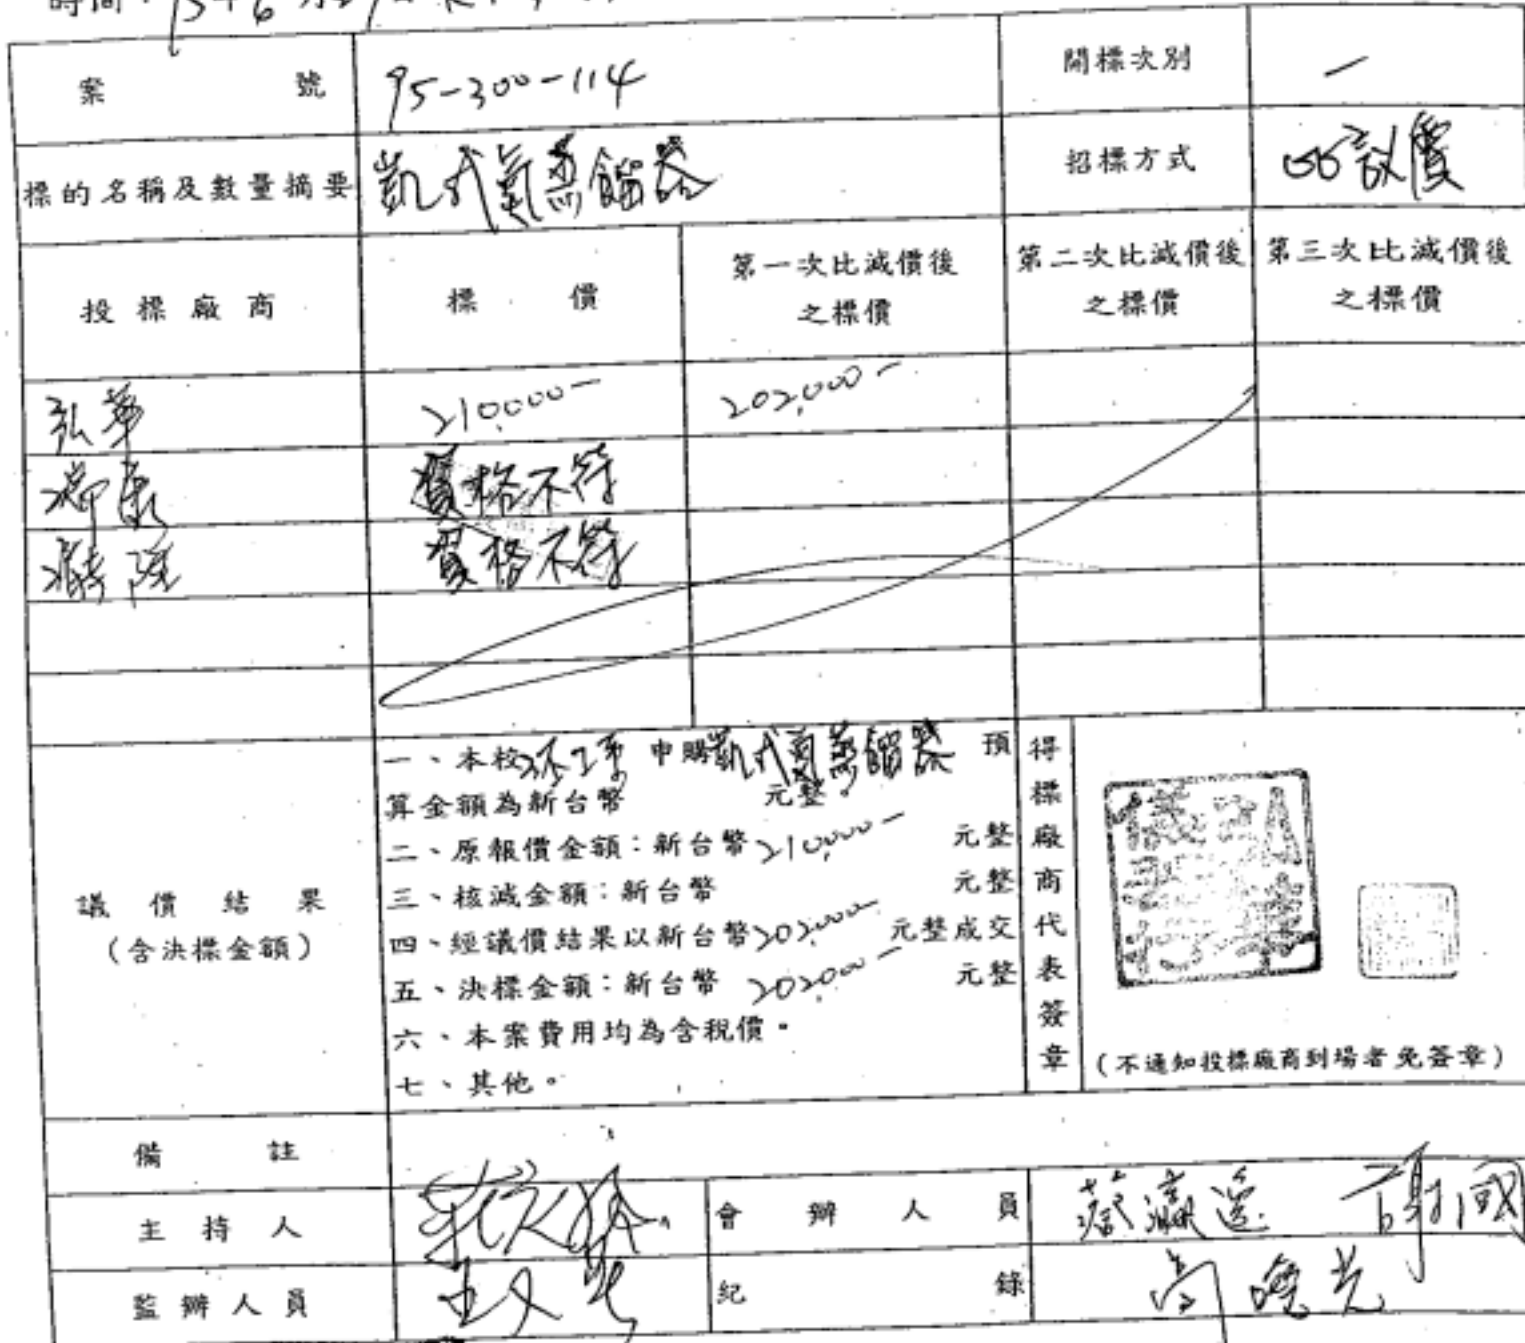 時間：95年6月
案號 95-300-114 開標次別 一
標的名稱及數量摘要 凱式氮蒸餾器 招標方式 比議價
投標廠商 標價 第一次比減價後之標價 第二次比減價後之標價 第三次比減價後之標價
弘華 210,000- 202,000-
資格不符
資格不符
議價結果
(含決標金額)
一、本校環工系申購凱式氮蒸餾器預
算金額為新台幣 元整。
二、原報價金額：新台幣210,000- 元整
三、核減金額：新台幣 元整
四、經議價結果以新台幣202,000- 元整成交
五、決標金額：新台幣 202,000- 元整
六、本案費用均為含稅價。
七、其他。
得標廠商代表簽章
(不通知投標廠商到場者免簽章)
備註
主持人 會辦人員
監辦人員 紀錄